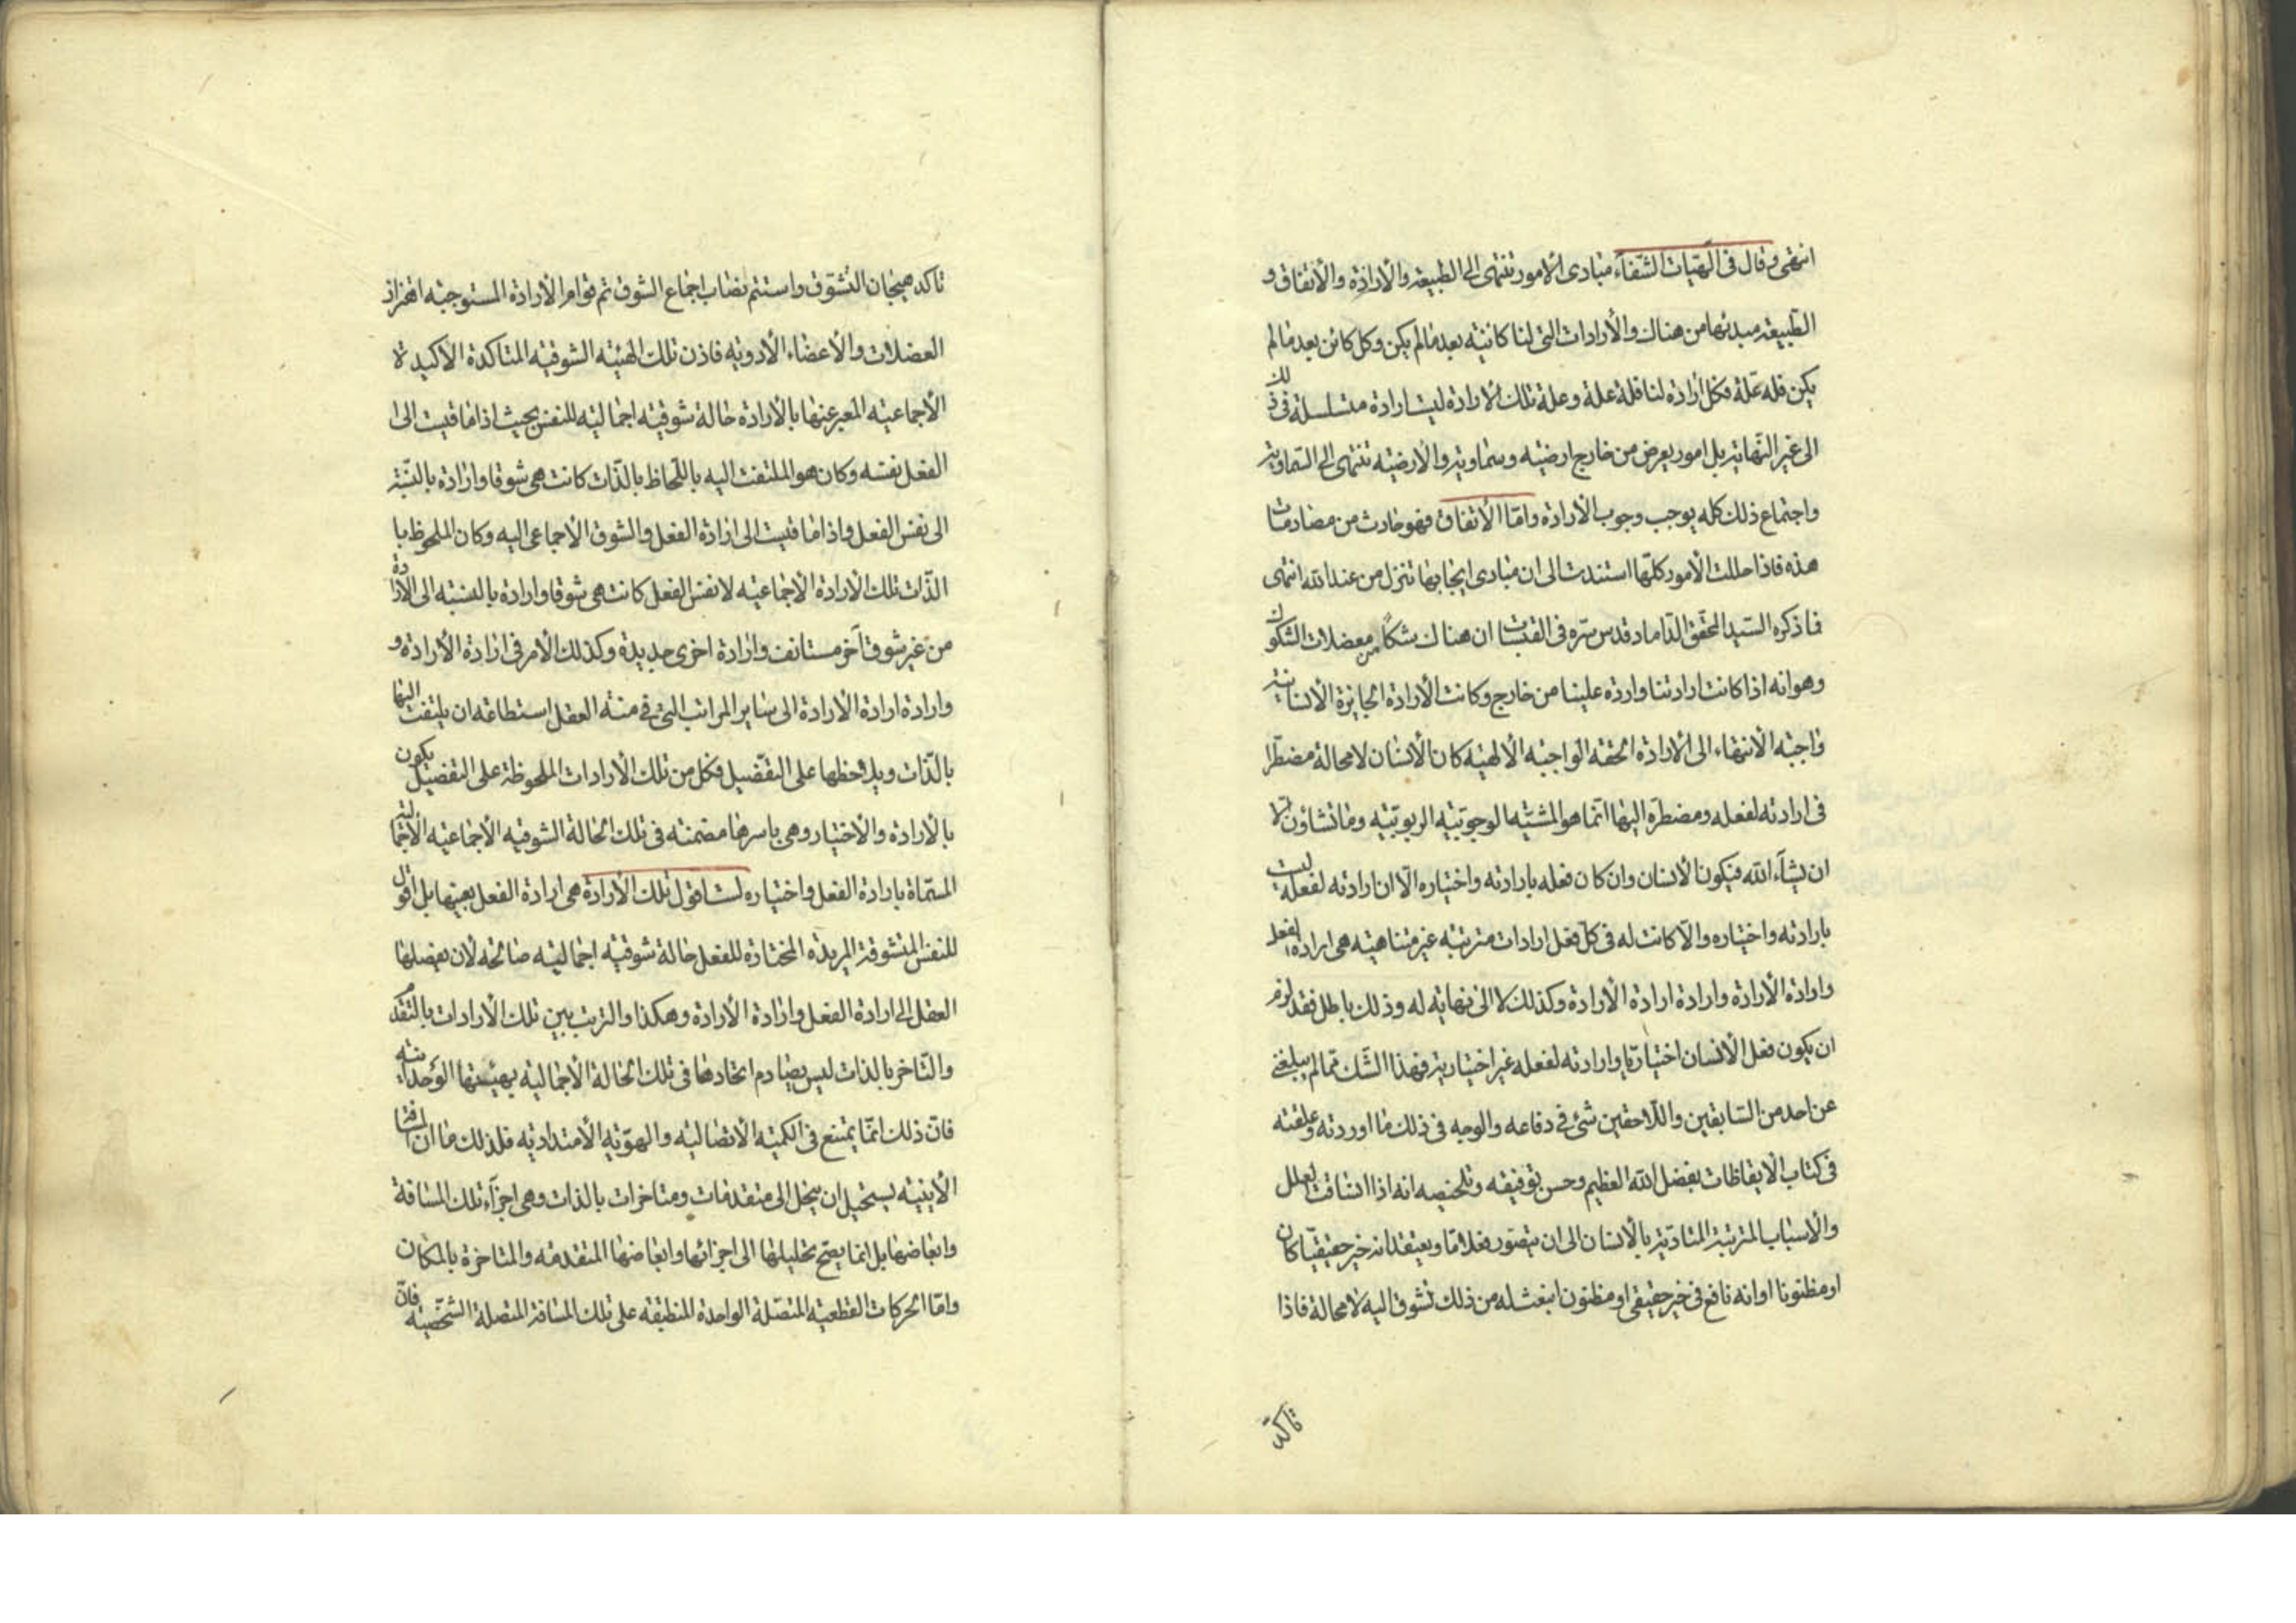 انتهى وقال فى الهيات الشفاء مبادى الامور تنتهى الى الطبيعة والارادة والاتفاق و
الطبيعة مبدئها من هناك والارادات التى لنا كائنة بعد مالم يكن وكل كائن بعد مالم
يكن فله علة فكل ارادة لنا فلها علة وعلة تلك الارادة ليست ارادة متسلسلة فى ذلك
الى غير النهاية بل امور يعرض من خارج ارضيه وسماوية والارضيه تنتهى الى السماوية
واجتماع ذلك كله يوجب وجوب الارادة واما الاتفاق فهو حادث من مصادمات
هذه فاذا حللت الامور كلها استندت الى ان مبادى ايجابها تنزل من عند الله انتهى
فما ذكره السيد المحقق الداماد قدس سره فى القبسات ان هناك شكا من معضلات الشكوك
وهو انه اذا كانت ارادتنا وارده علينا من خارج وكانت الارادة الجايزة الانسانية
واجبه الانتهاء الى الارادة الحقه الواجبه الالهيه كان الانسان لا محالة مضطرا
فى ارادته لفعله ومضطره اليها انما هو المشيه الوجوبيه الربوبيه وما تشاؤن الا
ان يشاء الله فيكون الانسان وان كان فعله بارادته واختياره الا ان ارادته لفعله ليست
بارادته واختياره والا كانت له فى كل فعل ارادات مترتبه غير متناهيه هى ارادة الفعل
وارادة الارادة وارادة ارادة الارادة وكذلك لا الى نهايه له وذلك باطل فقد لزم
ان يكون فعل الانسان اختياريا وارادته لفعله غير اختيارية فهذا الشك مما لم يبلغنى
عن احد من السابقين واللاحقين شئ فى دفاعه والوجه فى ذلك ما اوردته وعلقته
فى كتاب الايقاظات بفضل الله العظيم وحسن توفيقه وتلخيصه انه اذا انساقت العلل
والاسباب المترتبة المتادية بالانسان الى ان يتصور فعلا ما ويعتقد انه خير حقيقيا كان
او مظنونا او انه نافع فى خير حقيقى او مظنون انبعث له من ذلك تشوق اليه لا محالة فاذا
تاكد
تاكد هيجان التشوق واستتم نصاب اجماع الشوق تم قوام الارادة المستوجبه اهتزاز
العضلات والاعضاء الادويه فاذن تلك الهيئه الشوقيه المتاكدة الاكيدة
الاجماعيه المعبر عنها بالارادة حالة شوقيه اجماليه للنفس بحيث اذا ما قيست الى
الفعل نفسه وكان هو الملتفت اليه باللحاظ بالذات كانت هى شوقا وارادة بالنسبة
الى نفس الفعل واذا ما قيست الى ارادة الفعل والشوق الاجماعى اليه وكان الملحوظ با
الذات تلك الارادة الاجماعيه لا نفس الفعل كانت هى شوقا وارادة بالنسبه الى الارادة
من غير شوق آخر مستانف وارادة اخرى جديدة وكذلك الامر فى ارادة الارادة و
وارادة ارادة الارادة الى ساير المراتب التى فى منه العقل استطاعه ان يلتفت اليها
بالذات ويلاحظها على التفصيل فكل من تلك الارادات الملحوظة على التفضيل يكون
بالارادة والاختيار وهى باسرها مضمنه فى تلك الحالة الشوقيه الاجماعيه الاجمالية
المسماة بارادة الفعل واختياره لست اقول تلك الارادة هى ارادة الفعل بعينها بل اقول
للنفس المتشوقة المريده المختارة للفعل حالة شوقيه اجماليه صالحه لان يفصلها
العقل الى ارادة الفعل وارادة الارادة وهكذا والترتب بين تلك الارادات بالتقدم
والتاخر بالذات ليس يصادم اتحادها فى تلك الحالة الاجماليه بهيئتها الوحدانيه
فان ذلك انما يمتنع فى الكميه الاتصاليه والهويه الامتداديه فلذلك ما ان المسافة
الاينيه يستحيل ان ينحل الى متقدمات ومتاخرات بالذات وهى اجزاء تلك المسافة
وابعاضها بل انما يصح تحليلها الى اجزائها وابعاضها المتقدمه والمتاخرة بالمكان
واما الحركات القطعيه المتصلة الواحدة المنطبقه على تلك المسافة المتصلة الشخصيه فان